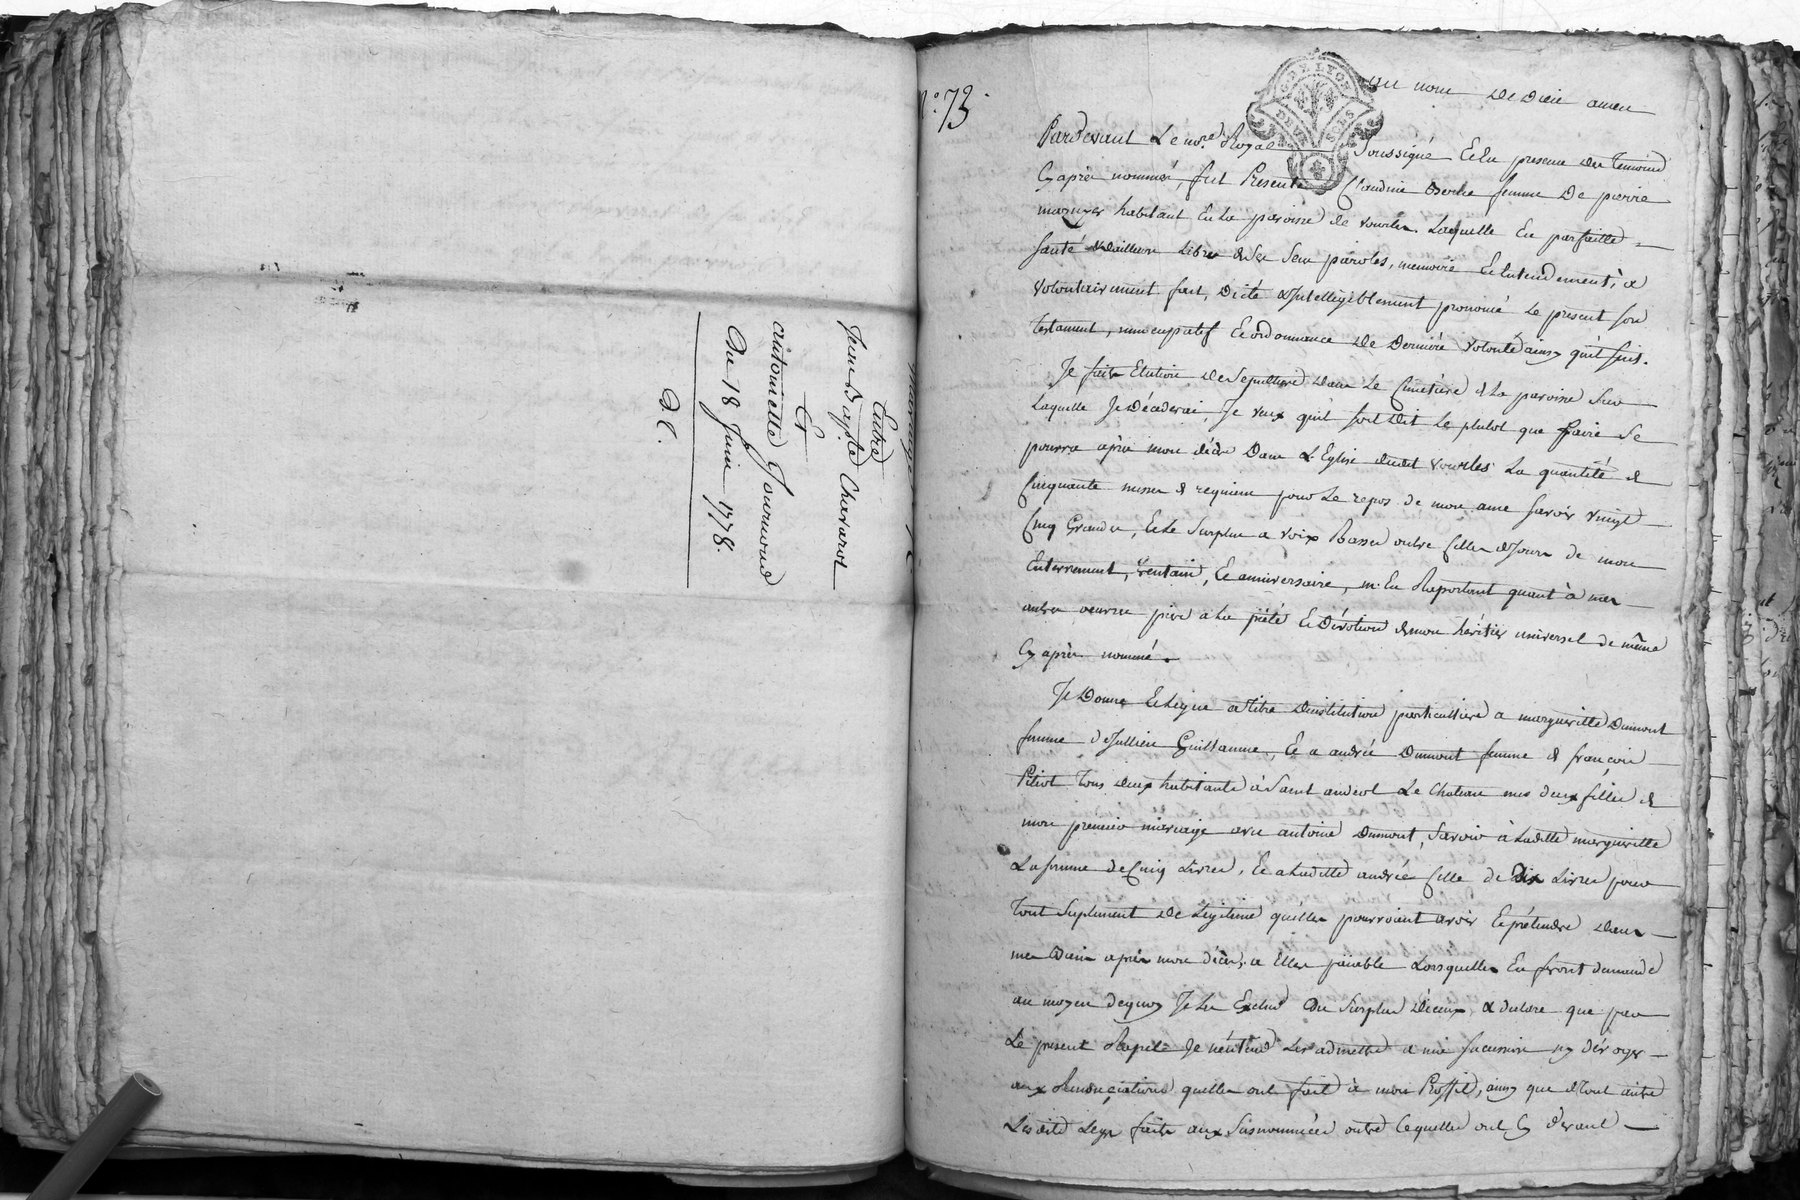 Mariage
Entre
Jean Bapte Chavarot
Et
antoinette Tournoud
Du 18 Juin 1778.
N°. 73.
G. DE LYON
DEUX SOLS
Au nom De Dieu amen
Pardevant Le nore. Royal Soussigné Et En presence des Temoins
Cy après nommés, fut Presente Claudine femme De pierre
habitant En La paroisse de vourles. Laquelle En parfaitte
santé d'ailleurs Libre de Ses Sens paroles, memoire Et Entendement, a
volontairement fait, dicté & Intelligiblement prononcé Le present son
Testament, nuncupatif Et ordonnance De Derniere volonté ainsy qu'il suit.
Je fais Election De Sepulture Dans Le Cimetiere de La paroisse Sur
Laquelle Je Décederai, Je veux qu'il soit Dit Le plutot que faire Se
pourra après mon décès Dans L'Eglise dudit vourles La quantité de
Cinquante messes de requiem pour Le repos de mon ame savoir vingt
Cinq Grandes, Et Le Surplus a voix Basse outre Celles du Jour de mon
Enterrement, trentain, Et anniversaire, m'En Raportant quant à mes
autres oeuvres pies a La pieté Et Dévotion de mon héritier universel de même
Cy après nommé.
Je Donne Et Legue a titre D'institution particulliere a margueritte Dumont
femme de Jullien Guillaume, Et a andrée Dumont femme de françois
Pitiot Tous deux habitants à Saint andeol Le Chateau mes deux filles de
mon premier mariage avec antoine Dumont, Savoir à Laditte margueritte
La somme de Cinq Livres, Et a Laditte andrée Celle de Dix Livres pour
Tout Suplement De Legitime quelles pourroient avoir Et prétendre Dans
mes Biens après mon décès, a Elles païable Lorsquelles En feront demande
au moyen de quoy Je Les Exclus Du Surplus D'iceux, & declare que par
Le present Je n'entend Les admettre a ma Succession ny déroger
aux Renonciations quelles ont fait à mon Proffit, ainsy que Tout autre
Lesdits Legs faits aux Susnommées outre Ce quelles ont Cy devant